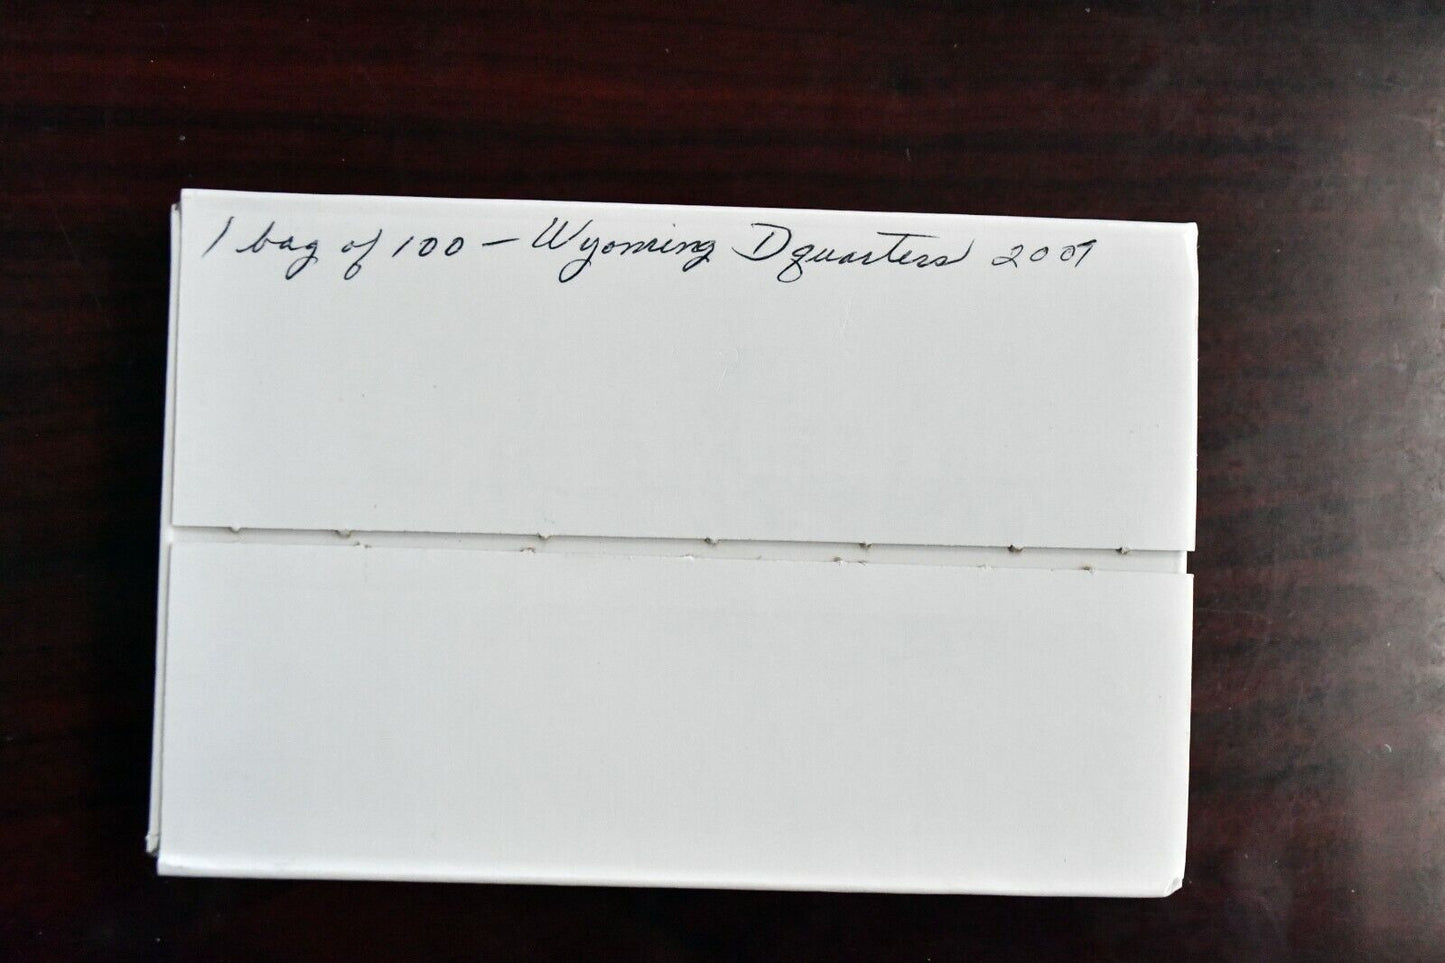 1 bag of 100 - Wyoming D quarters 2007